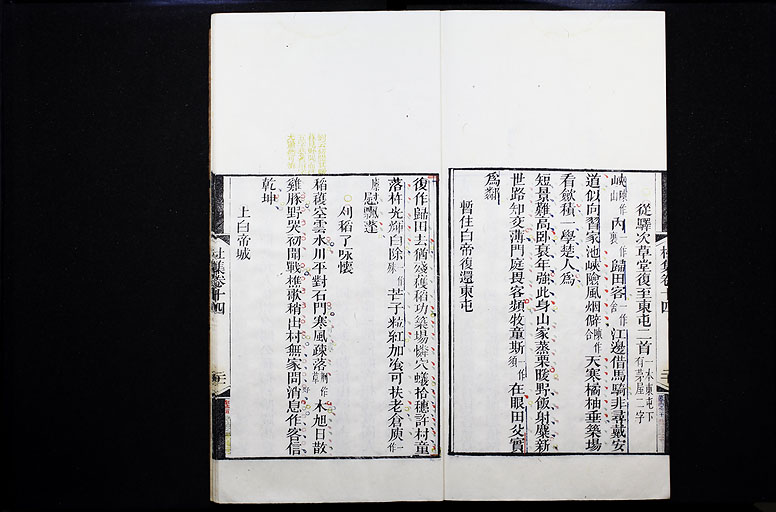 從驛次草堂復至東屯二首一本東屯下有茅屋二字
峽內歸田客江邊借馬騎非尋戴安
道似向習家池峽險風烟僻天寒橘柚垂築場
看斂積一學楚人為
短景難高臥衰年強此身山家蒸栗暖野飯射麋新
世路知交薄門庭畏客頻牧童斯在眼田父實
為鄰
暫住白帝復還東屯
復作歸田去猶殘穫稻功築場憐穴蟻拾穗許村童
落杵光輝白除芒子粒紅加飡可扶老倉庾一作
慰飄蓬
刈稻了咏懷
稻穫空雲水川平對石門寒風疎落木旭日散
雞豚野哭初聞戰樵歌稍出村無家問消息作客信
乾坤
上白帝城
杜集卷十四